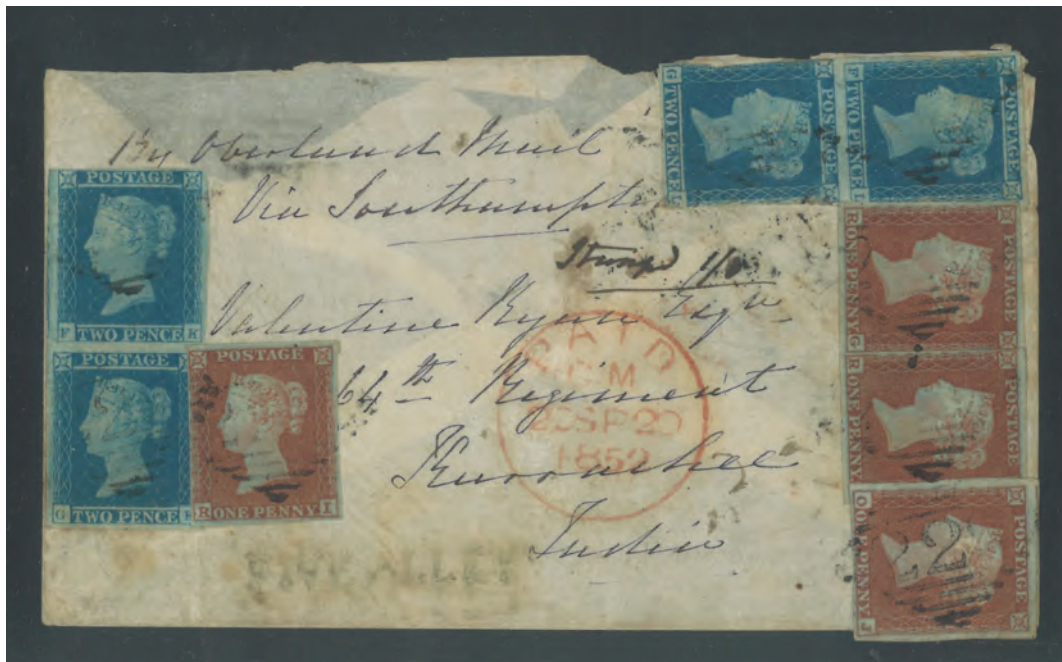 By Overland Mail
Via Southampton
Stamped 1/0
Valentine Ryan Esqr
64th Regiment
Kurrachee
India
PAID
20SP20
1852
POSTAGE
F TWO PENCE K
POSTAGE
G TWO PENCE K
POSTAGE
R ONE PENNY I
POSTAGE
G TWO PENCE L
POSTAGE
F TWO PENCE L
POSTAGE
R ONE PENNY G
POSTAGE
R ONE PENNY
POSTAGE
Q ONE PENNY J
22